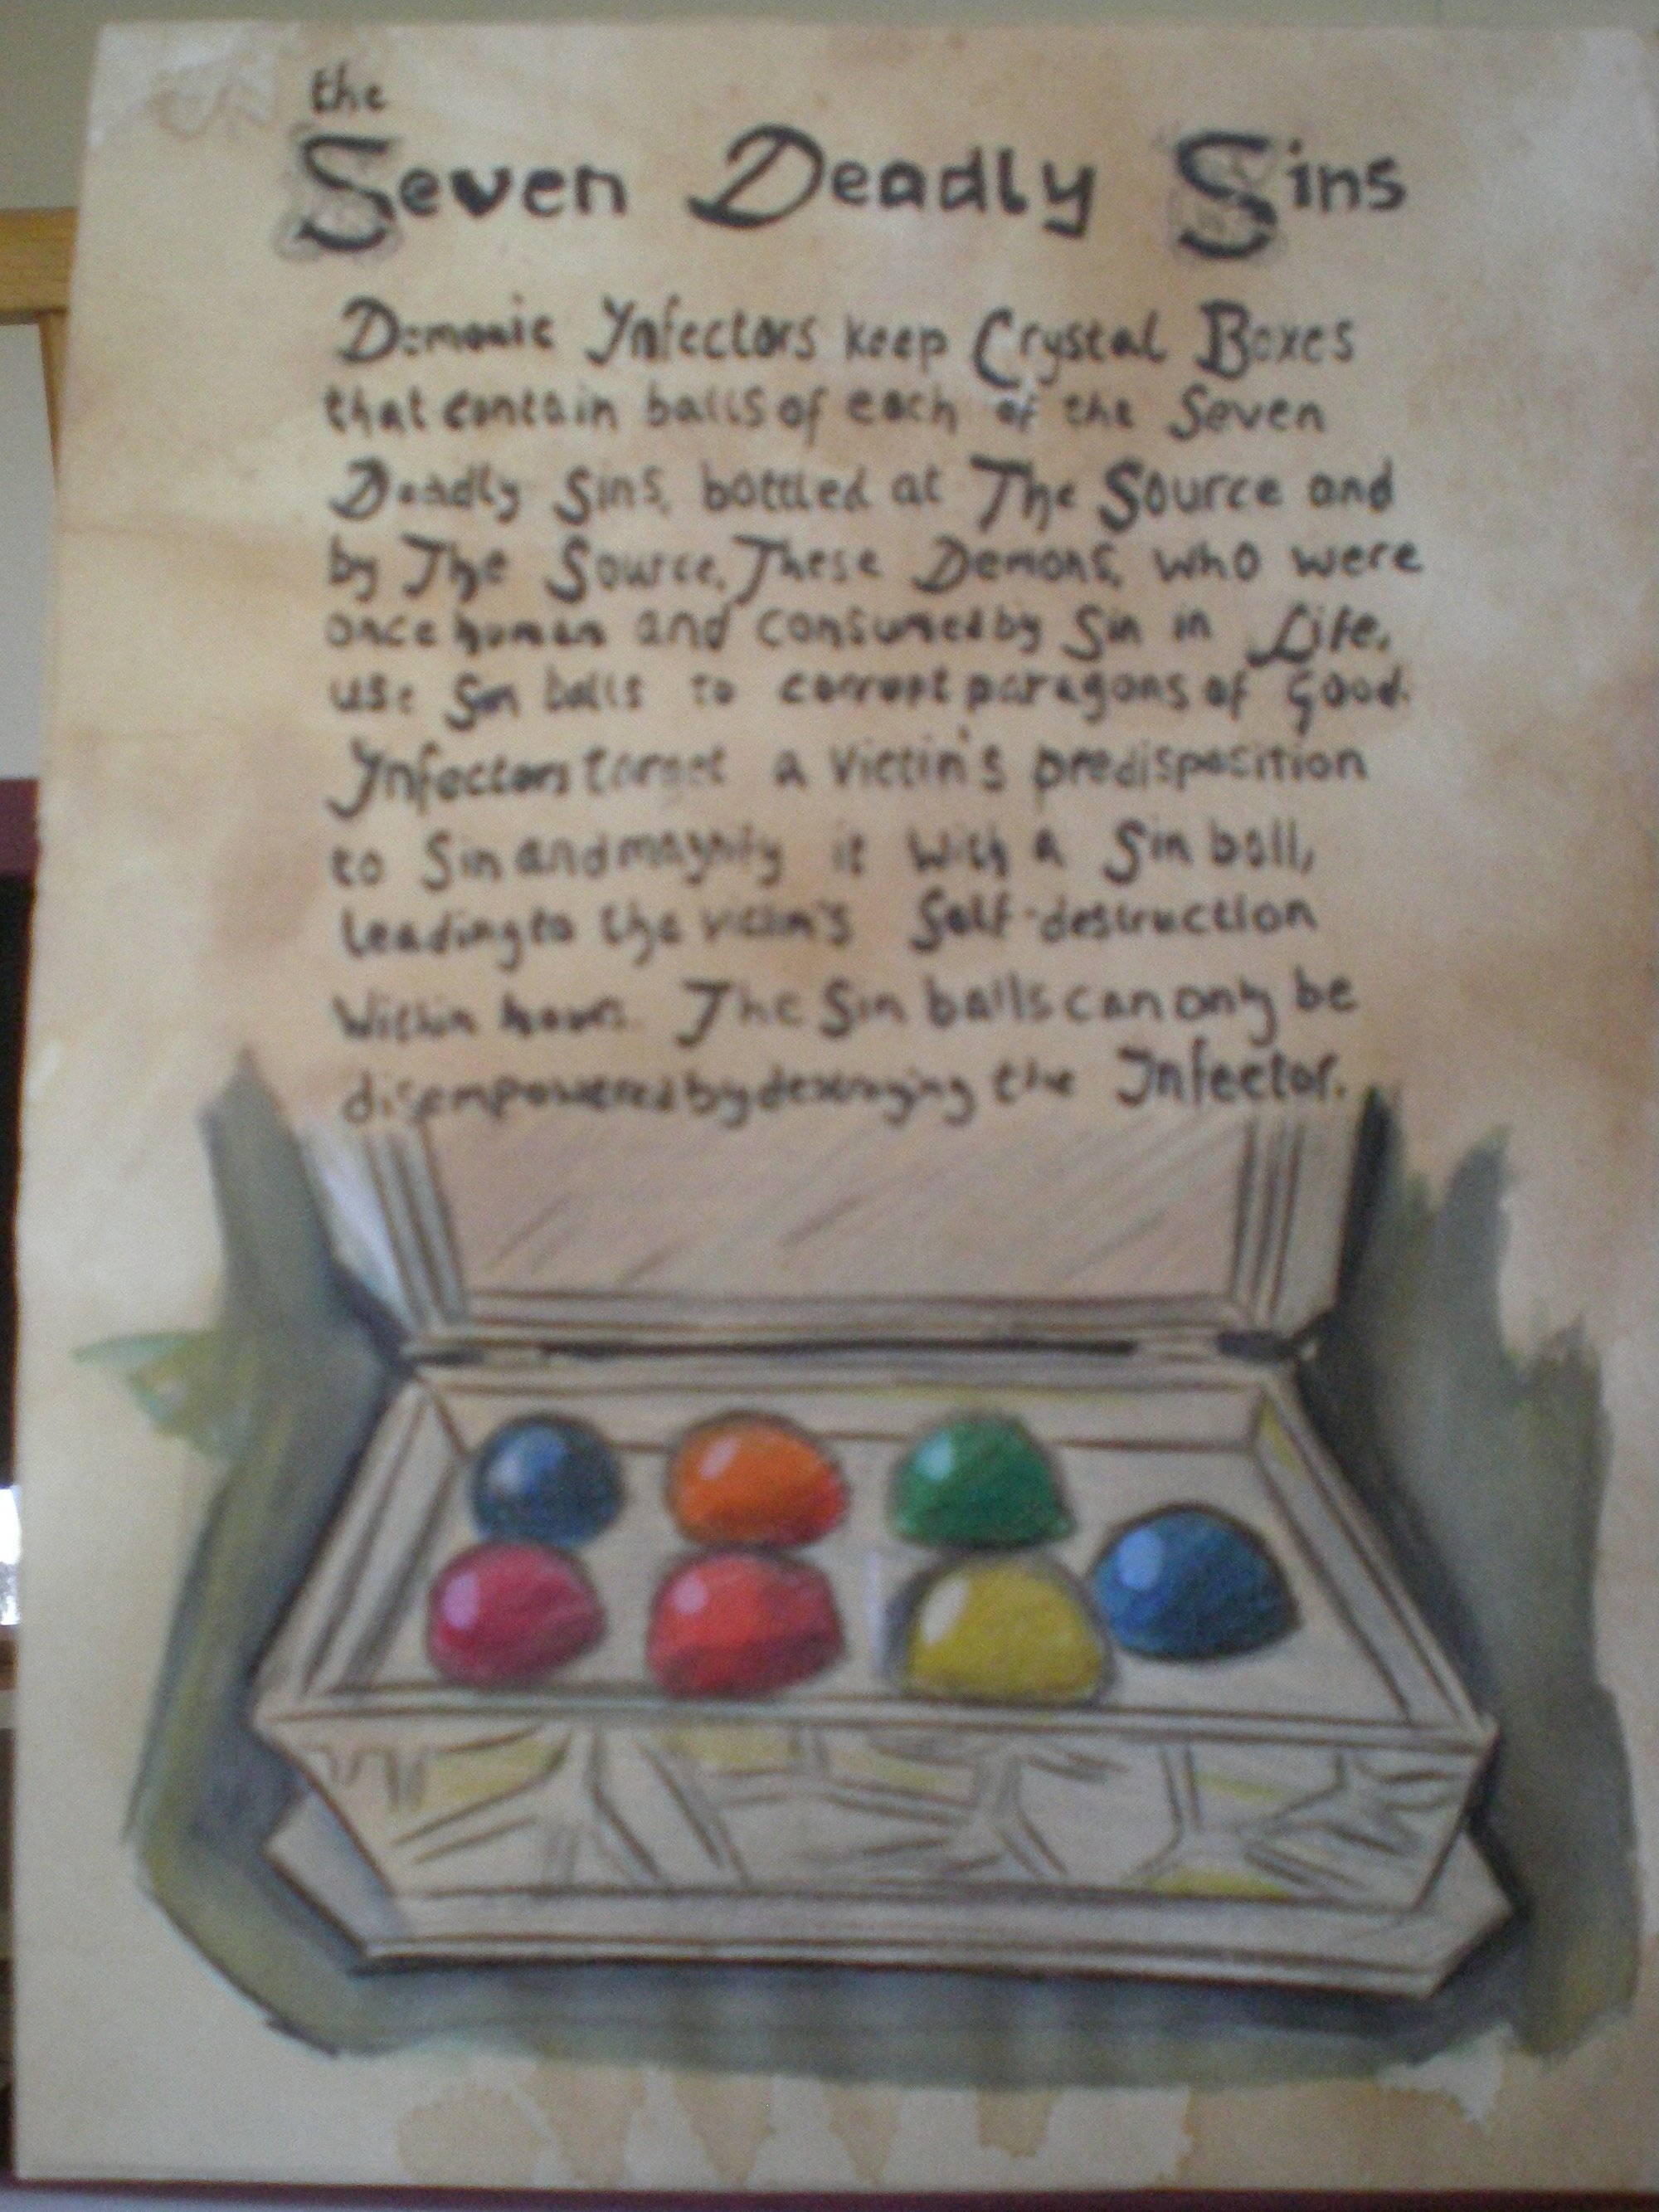 the
Seven Deadly Sins
Demonic Infectors keep Crystal Boxes
that contain balls of each of the Seven
Deadly Sins, bottled at The Source and
by The Source. These Demons, who were
once human and consumed by Sin in Life,
use Sin balls to corrupt paragons of Good.
Infectors target a victim's predisposition
to Sin and magnify it with a Sin ball,
leading to the victim's Self-destruction
within hours. The Sin balls can only be
disempowered by destroying the Infector.